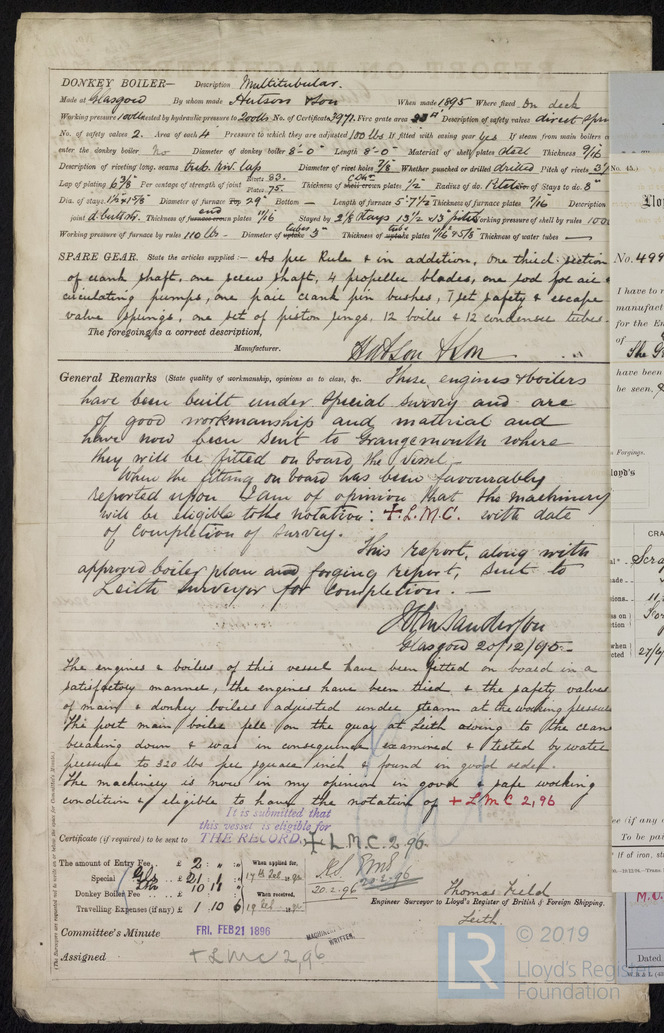 DONKEY BOILER— Description Multitubular.
Made at Glasgow By whom made Hutson & Son When made 1895 Where fixed On deck
Working pressure 100lbs tested by hydraulic pressure to 200lbs No. of Certificate 3971 Fire grate area Description of safety valves direct spring
No. of safety valves 2. Area of each 4 Pressure to which they are adjusted 100 lbs If fitted with easing gear yes If steam from main boilers
enter the donkey boiler No Diameter of donkey boiler 8'-0" Length 8'-0" Material of shell plates Steel Thickness 9/16
Description of riveting long. seams treb. riv. lap Diameter of rivet holes 7/8 Whether punched or drilled drilled Pitch of rivets
Lap of plating 6 3/8 Per centage of strength of joint Rivets 83. Plates 75. Thickness of crown plates 1/2 Radius of do. No. of Stays to do. 8"
Dia. of stays Diameter of furnace Top 29" Bottom — Length of furnace 5-7 1/2 Thickness of furnace plates 7/16 Description
joint d. butt st. Thickness of end plates 11/16 Stayed by 2 1/8 stays 13 1/2 x 13 pitch Working pressure of shell by rules
Working pressure of furnace by rules 110 lbs - Diameter of tubes 3" Thickness of tube plates Thickness of water tubes —
SPARE GEAR. State the articles supplied:— As per Rule & in addition, one third section
of crank shaft, one screw shaft, 4 propeller blades, one rod for air &
circulating pumps, one pair crank pin bushes, 1 set safety & escape
valve springs, one set of piston rings, 12 boiler & 12 condenser tubes.
The foregoing is a correct description,
Manufacturer. Hutson & Son
General Remarks (State quality of workmanship, opinions as to class, &c. These engines & boilers
have been built under special survey and are
of good workmanship and material and
have now been sent to Grangemouth where
they will be fitted on board the vessel.
When the fitting on board has been favourably
reported upon I am of opinion that the machinery
will be eligible to the notation: + L.M.C. with date
of completion of survey.
This report, along with
approved boiler plan and forging report, sent to
Leith Surveyor for completion. —
John Sanderson
Glasgow 20/12/95 —
The engines & boilers of this vessel have been fitted on board in a
satisfactory manner, the engines have been tried & the safety valves
of main & donkey boilers adjusted under steam at the working pressure
The port main boiler fell on the quay at Leith owing to the crane
breaking down & was in consequence examined & tested by water
pressure to 320 lbs per square inch & found in good order.
The machinery is now in my opinion in good & safe working
condition & eligible to have the notation of + L M C 2,96
It is submitted that
this vessel is eligible for
THE RECORD. + L.M.C. 2.96
Certificate (if required) to be sent to
The amount of Entry Fee.. £ 2 : " : " When applied for,
Special £ 21 : 1 : 17th Feb 1896
Donkey Boiler Fee £ 10 When received,
Travelling Expenses (if any) £ 1 : 10 : 6 19 Feb 1896
20.2.96
20.2.96
Thomas Field
Engineer Surveyor to Lloyd's Register of British & Foreign Shipping.
Leith.
Committee's Minute FRI. FEB 21 1896
MACHINERY
WRITTEN.
Assigned + L M C 2,96
No. 45.)
No. 499
I have to r
manufact
for the En
of
have been
be seen,
Forgings.
loyd's
CRA
Scra
when
To be pa
If of iron, s
Dated
© 2019
LR
Lloyd's Register
Foundation